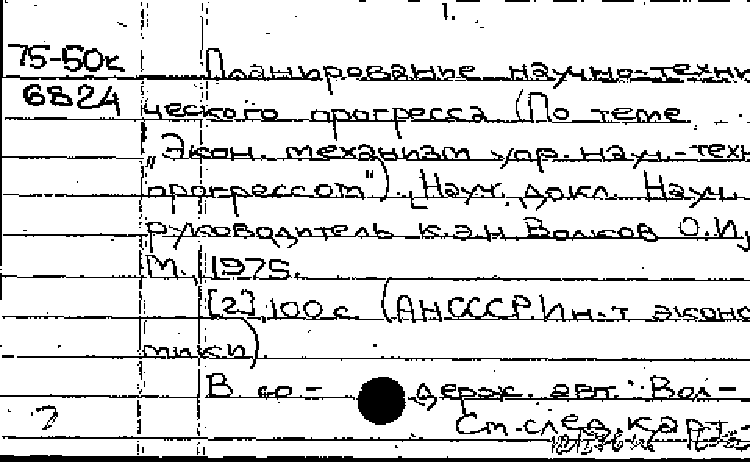 1.
75-50к Планирование научно-техни
6824 ческого прогресса (По теме
„Экон. механизм упр. науч.-техн
прогрессом"). [Науч. докл. Науч.
руководитель к.э.н. Волков О.И.
М., 1975.
[2], 100 с. (АН СССР. Ин-т эконо
мики).
В со- держ. авт.: Вол-
2 См. след. карт.